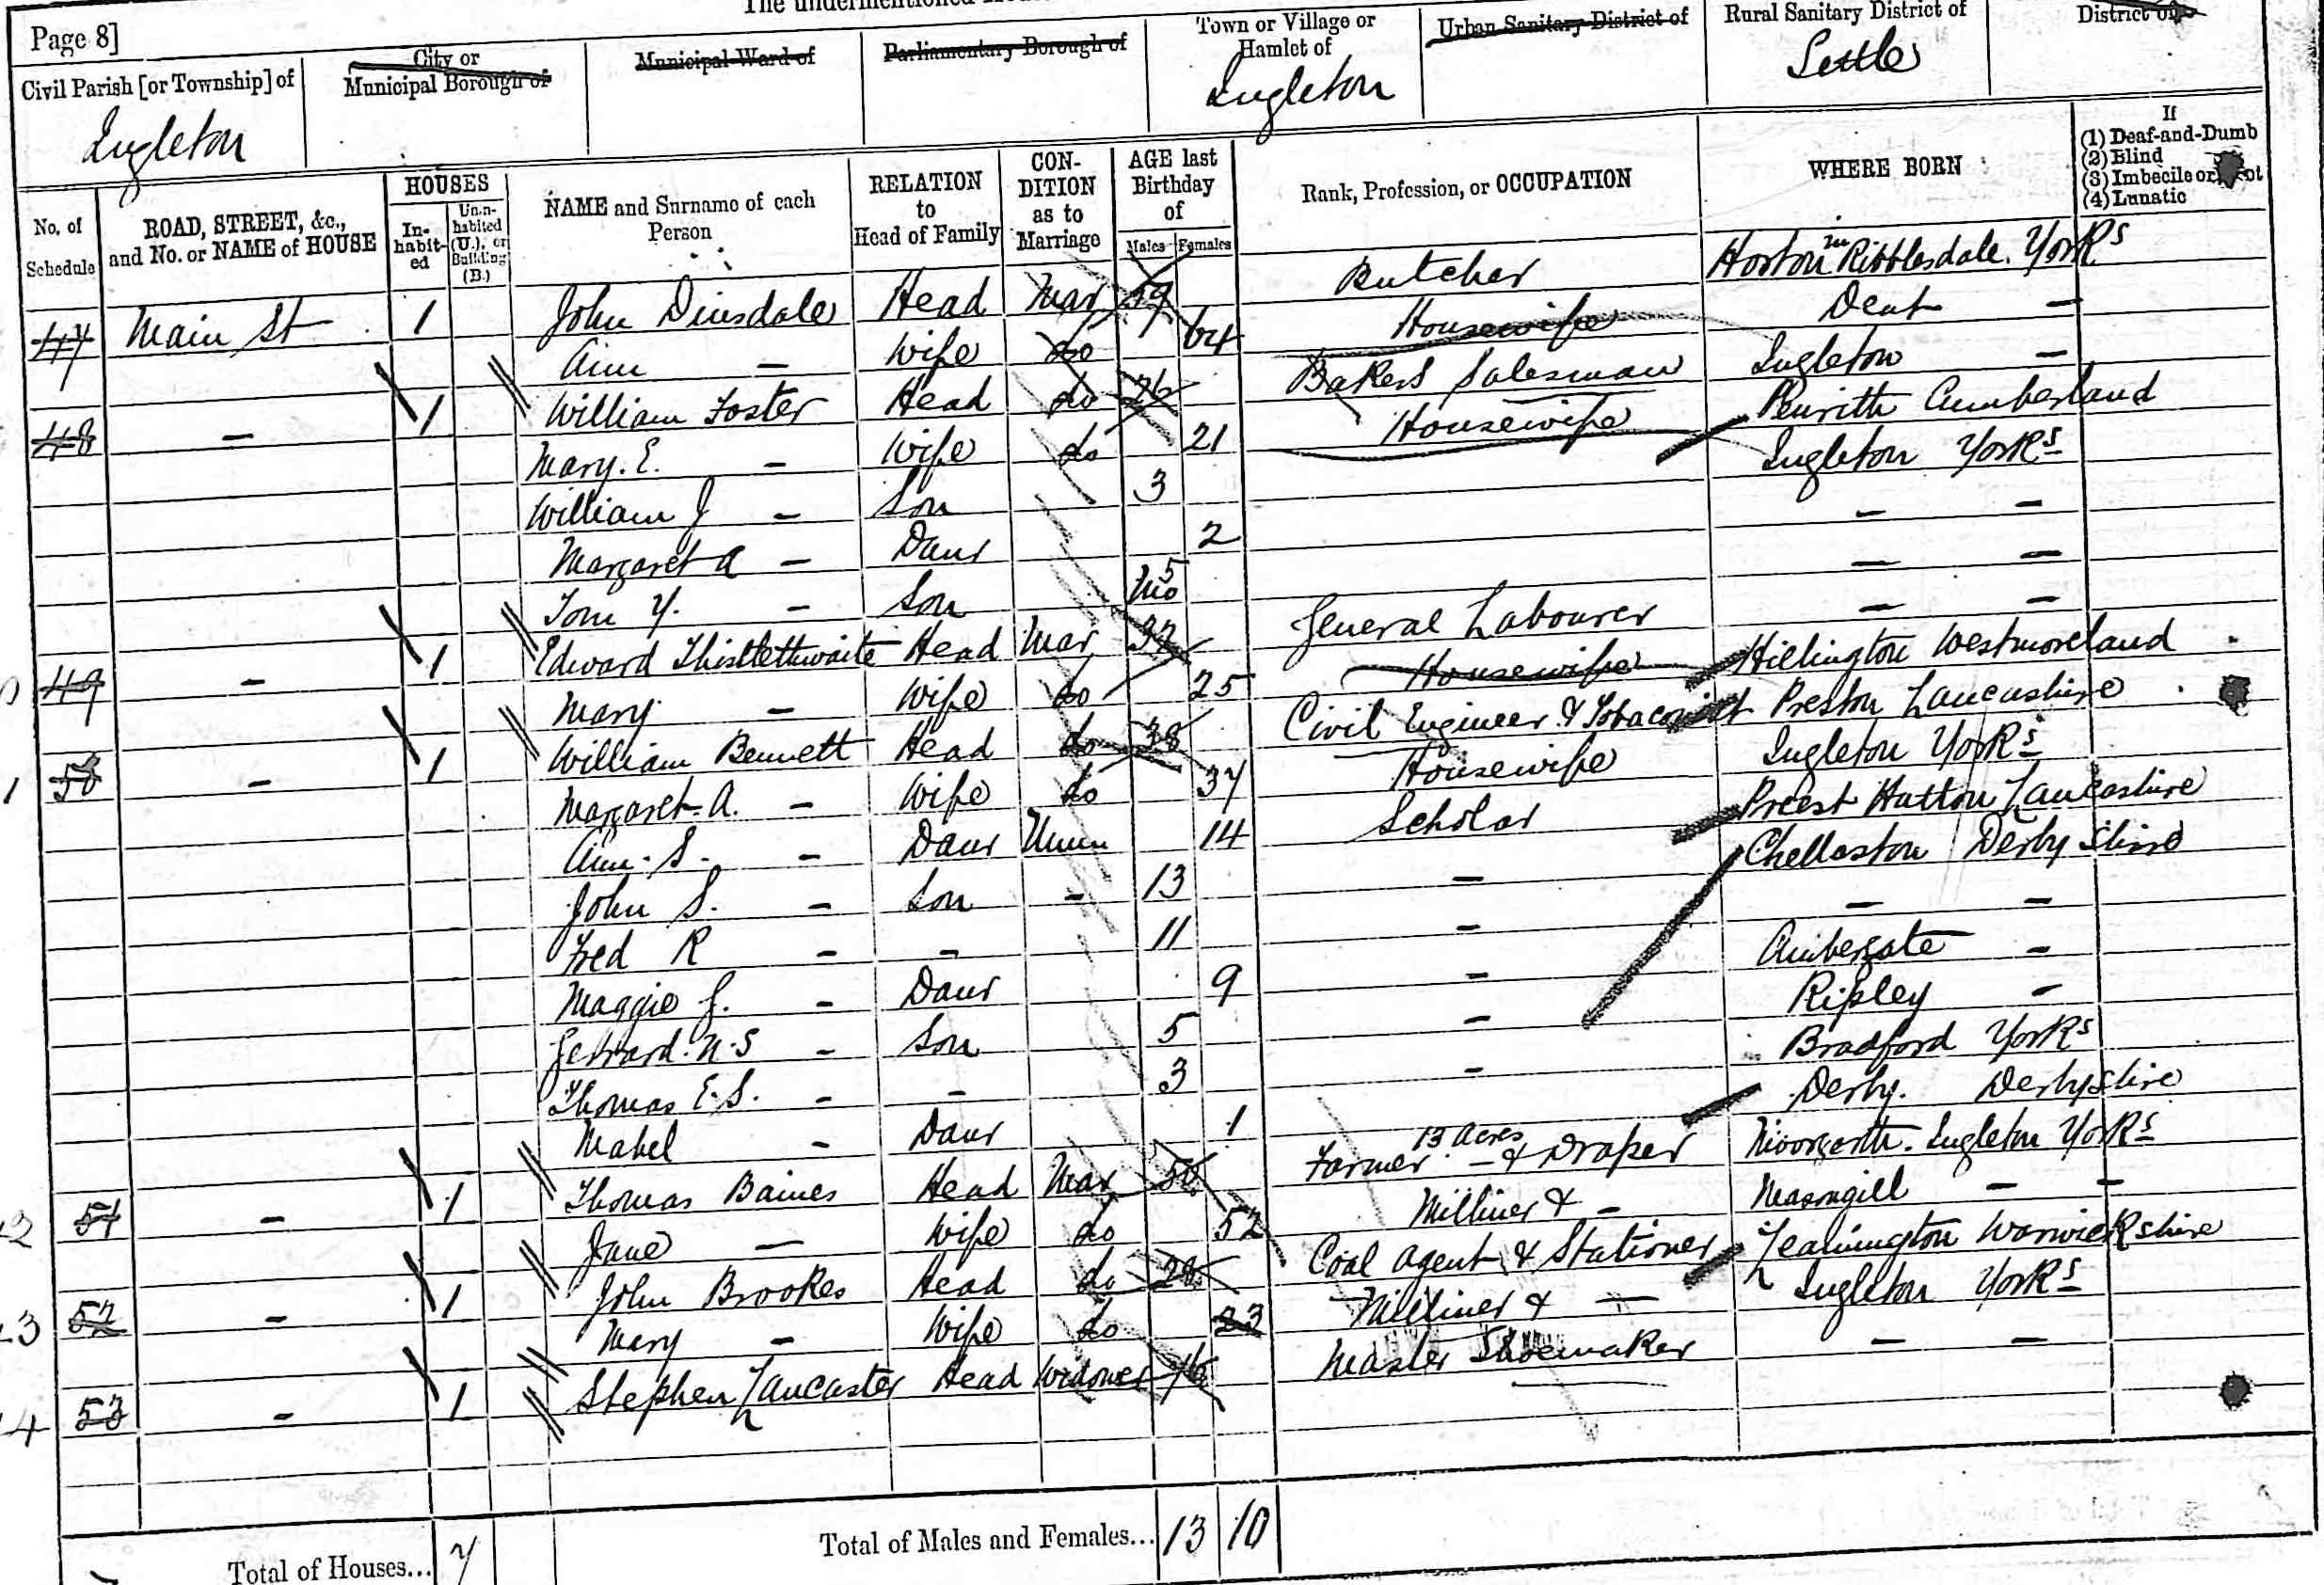 The undermentioned Hous
Page 8]
Civil Parish [or Township] of
Ingleton
City or
Municipal Borough of
Municipal Ward of
Parliamentary Borough of
Town or Village or
Hamlet of
Ingleton
Urban Sanitary District of
Rural Sanitary District of
Settle
District of
No. of
Schedule
ROAD, STREET, &c.,
and No. or NAME of HOUSE
HOUSES
In-
habit-
ed
Unin-
habited
(U.), or
Building
(B.)
NAME and Surname of each
Person
RELATION
to
Head of Family
CON-
DITION
as to
Marriage
AGE last
Birthday
of
Males Females
Rank, Profession, or OCCUPATION
WHERE BORN
If
(1) Deaf-and-Dumb
(2) Blind
(3) Imbecile or
(4) Lunatic
47 Main St 1 John Dinsdale Head Mar 59 Butcher Horton in Ribblesdale. Yorks
Ann — Wife do 64 Housewife Dent —
48 — 1 William Foster Head do 26 Bakers Salesman Ingleton —
Mary. E. — Wife do 21 Housewife Penrith Cumberland
William J — Son 3 Ingleton Yorks
Margaret A — Daur 2 — —
Tom Y. — Son 5 Mo — —
49 — 1 Edward Thistlethwaite Head Mar 32 General Labourer — —
Mary — Wife do 25 Housewife Hillington Westmoreland
50 — 1 William Bennett Head do 38 Civil Engineer & Tobaconist Preston Lancashire
Margaret. A. — Wife do 37 Housewife Ingleton Yorks
Ann. S. — Daur Unm 14 Scholar Preest Hutton Lancashire
John S. — Son - 13 — Chellaston Derbyshire
Fred R — — 11 — — —
Maggie J. — Daur 9 — Ambergate —
Gerrard. N. S — Son 5 — Ripley —
Thomas E. S. — — 3 — Bradford Yorks
Mabel — Daur 1 Derby. Derbyshire
51 — 1 Thomas Baines Head Mar 50 Farmer 13 Acres — & Draper Moorgarth. Ingleton Yorks
Jane — Wife do 52 Milliner & — Masongill — —
52 — 1 John Brookes Head do 28 Coal Agent & Stationer Leamington Warwickshire
Mary — Wife do 23 Milliner & — Ingleton Yorks
53 — 1 Stephen Lancaster Head Widower 76 Master Shoemaker — —
Total of Houses... 7
Total of Males and Females... 13 10